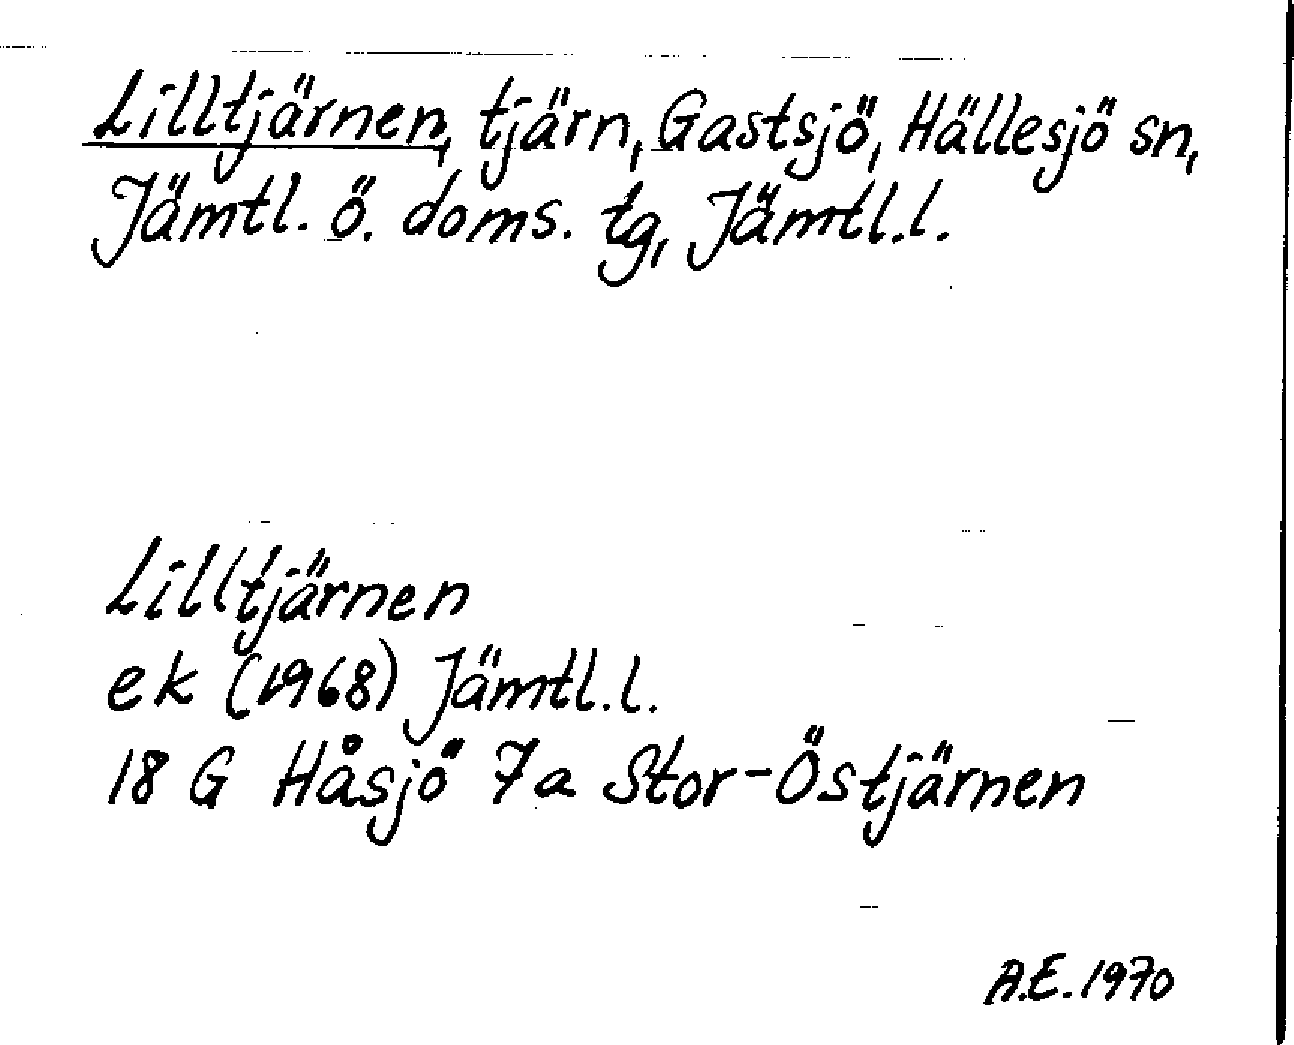 Lilltjärnen, tjärn, Gastsjö, Hällesjö sn,
Jämtl. ö. doms. tg, Jämtl.l.
Lilltjärnen
ek (1968) Jämtl.l.
18 G Håsjö 7a Stor-Östjärnen
A.E. 1970